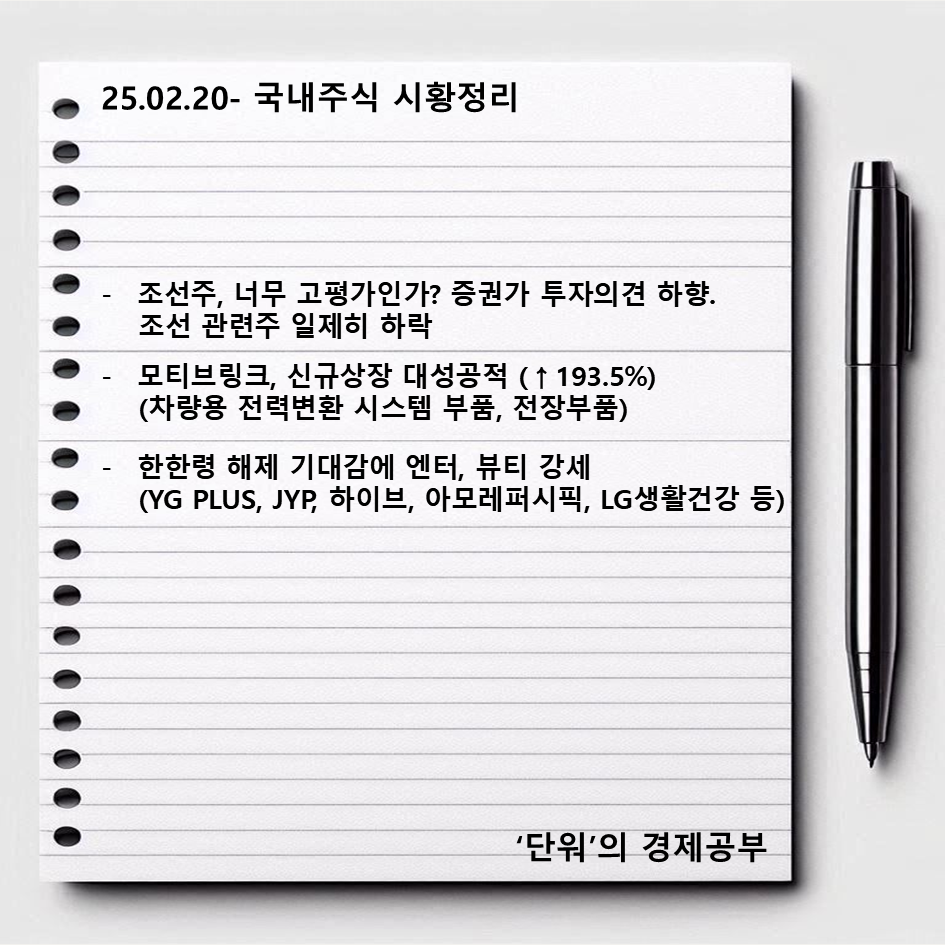 25.02.20- 국내주식 시황정리
- 조선주, 너무 고평가인가? 증권가 투자의견 하향.
조선 관련주 일제히 하락
- 모티브링크, 신규상장 대성공적 (↑193.5%)
(차량용 전력변환 시스템 부품, 전장부품)
- 한한령 해제 기대감에 엔터, 뷰티 강세
(YG PLUS, JYP, 하이브, 아모레퍼시픽, LG생활건강 등)
‘단워’의 경제공부